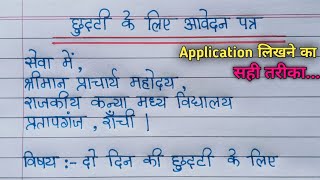 छुट्टी के लिए आवेदन पत्र
Application लिखने का
सही तरीका...
सेवा में,
श्रीमान प्राचार्य महोदय,
राजकीय कन्या मध्य विद्यालय
प्रतापगंज, राँची |
विषय :- दो दिन की छुट्टी के लिए